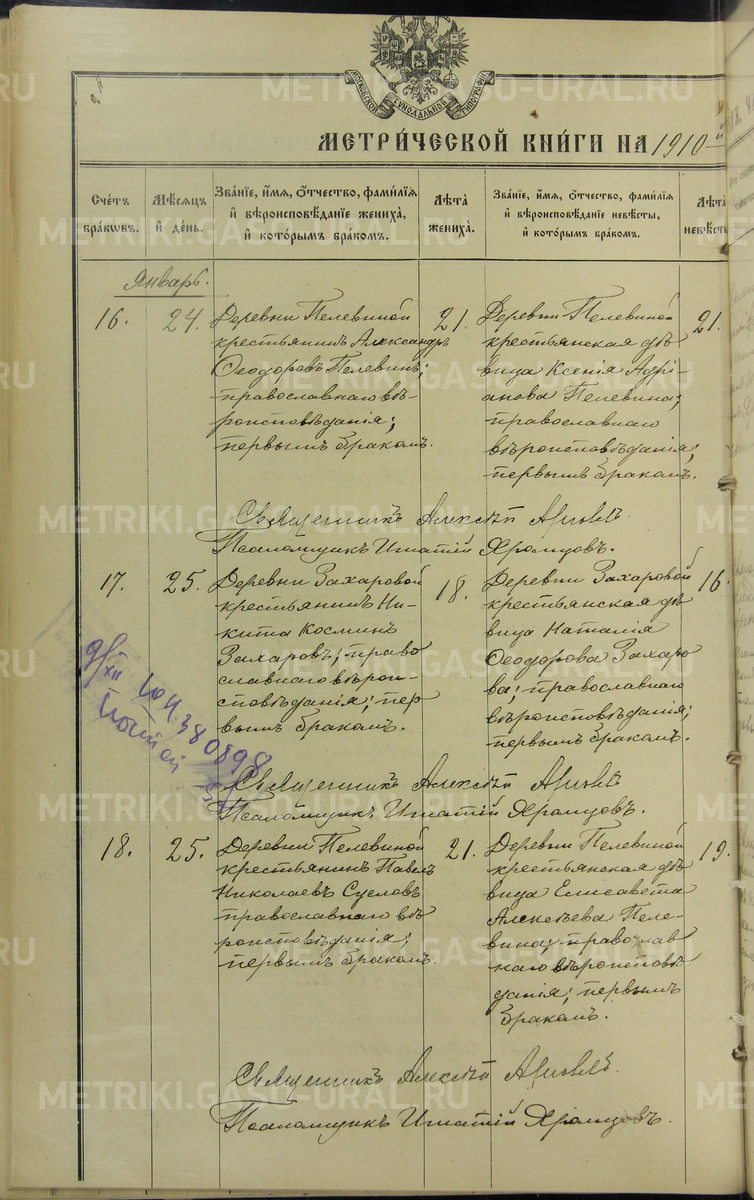 МОСКОВСКОЙ СУНОДАЛЬНОЙ ТИПОГРАФІИ
МЕТРИ́ЧЕСКОЙ КНИ́ГИ НА 1910 й
Сче́тъ бра́кωвъ.
Мѣ́сяцъ и҆ де́нь.
Зва́нїе, и҆́мя, ѻ҆́тчество, фами́лїя
и҆ вѣроисповѣ́данїе жениха̀,
и҆ кото́рымъ бра́комъ.
Лѣта̀ жениха̀.
Зва́нїе, и҆́мя, ѻ҆́тчество, фами́лїя
и҆ вѣроисповѣ́данїе невѣ́сты,
и҆ кото́рымъ бра́комъ.
Лѣта̀ невѣ́сты
Январь.
16.
24.
Деревни Пелевиной
крестьянинъ Александръ
Ѳеодоровъ Пелевинъ;
православнаго вѣ-
роисповѣданія;
первымъ бракомъ.
21.
Деревни Пелевиной
крестьянская дѣ
вица Ксенія Адрі-
анова Пелевина;
православнаго
вѣроисповѣданія;
первымъ бракомъ.
21.
Священникъ Алексѣй
Псаломщикъ Игнатій Храмцовъ.
17.
25.
Деревни Захаровой
крестьянинъ Ни-
кита Косминъ
Захаровъ; право
славнаго вѣрои-
сповѣданія; пер
вымъ бракомъ.
18.
Деревни Захаровой
крестьянская дѣ
вица Наталія
Ѳеодорова Захаро
ва; православнаго
вѣроисповѣданія;
первымъ бракомъ.
16.
Священникъ Алексѣй
Псаломщикъ Игнатій Храмцовъ.
18.
25.
Деревни Пелевиной
крестьянинъ Павелъ
Николаевъ Суслов
православнаго вѣ
роисповѣданія;
первымъ бракомъ.
21.
Деревни Пелевиной
крестьянская дѣ
вица Елисавета
Алексѣева Пеле-
вина; православ
наго вѣроисповѣ
данія; первымъ
бракомъ.
19.
Священникъ Алексѣй
Псаломщикъ Игнатій Храмцовъ.
METRIKI.GASO-URAL.RU